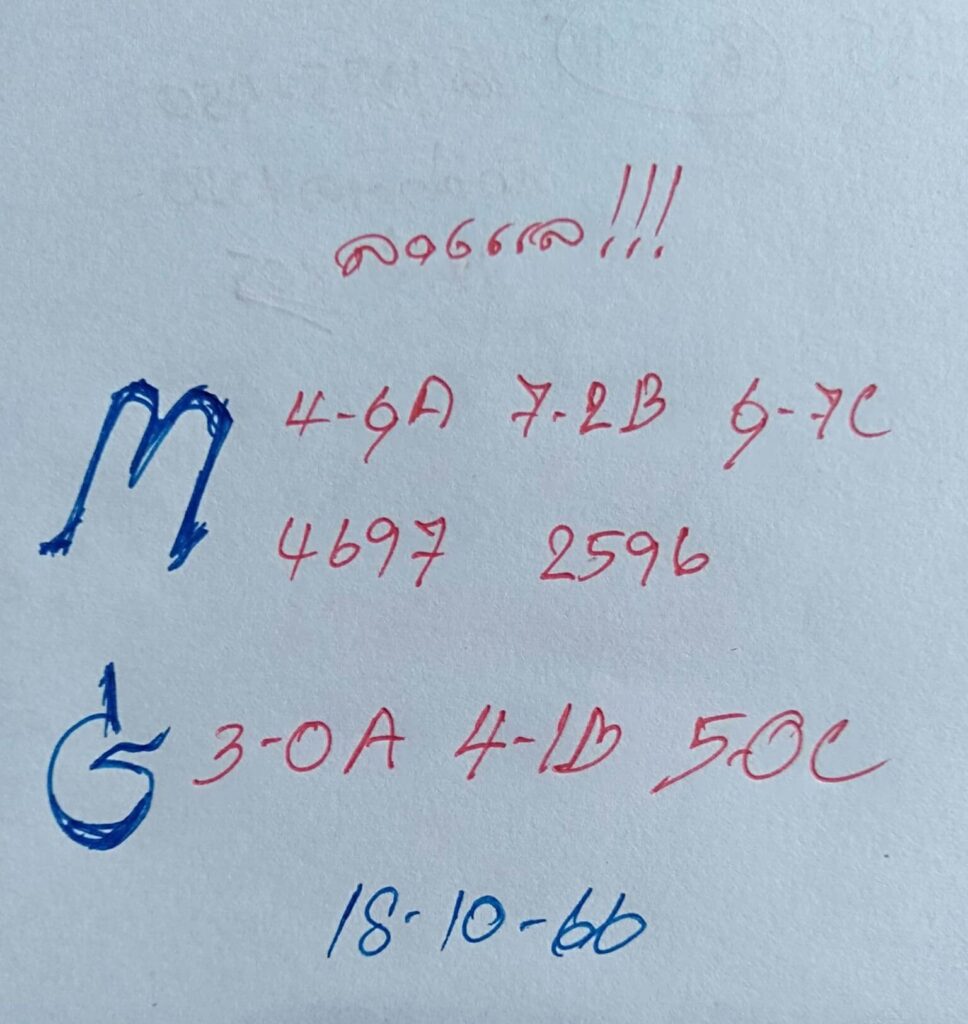 M 4-9A 7-2B 9-7C
4697 2596
G 3-0A 4-1B 5-0C
18-10-66